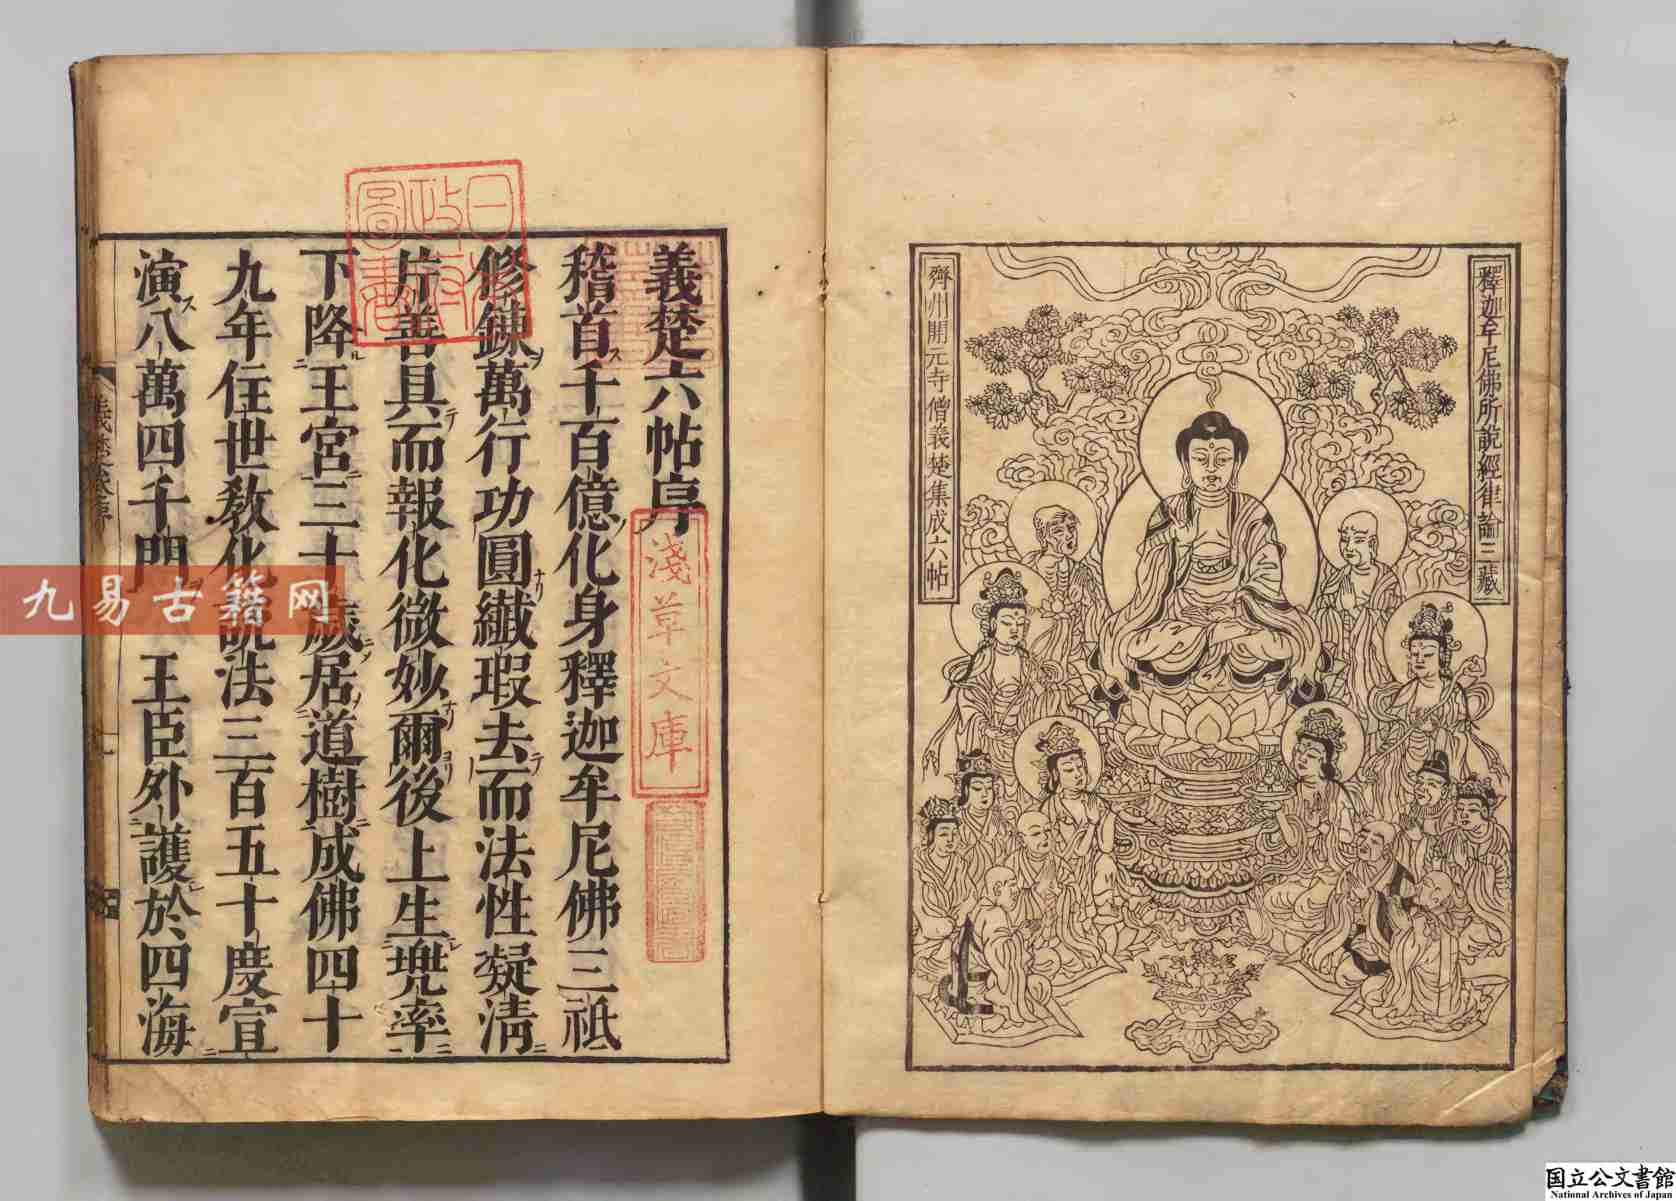 釋迦牟尼佛所說經律論三藏
齊州開元寺僧義楚集成六帖
義楚六帖序
稽首千百億化身釋迦牟尼佛三祇
修鍊萬行功圓纎瑕去而法性凝清
片善具而報化微妙爾後上生兜率
下降王宮三十歲居道樹成佛四十
九年住世敎化說法三百五十度宣
演八萬四千門王臣外護於四海
日本政府圖書
淺草文庫
九易古籍网
国立公文書館
National Archives of Japan